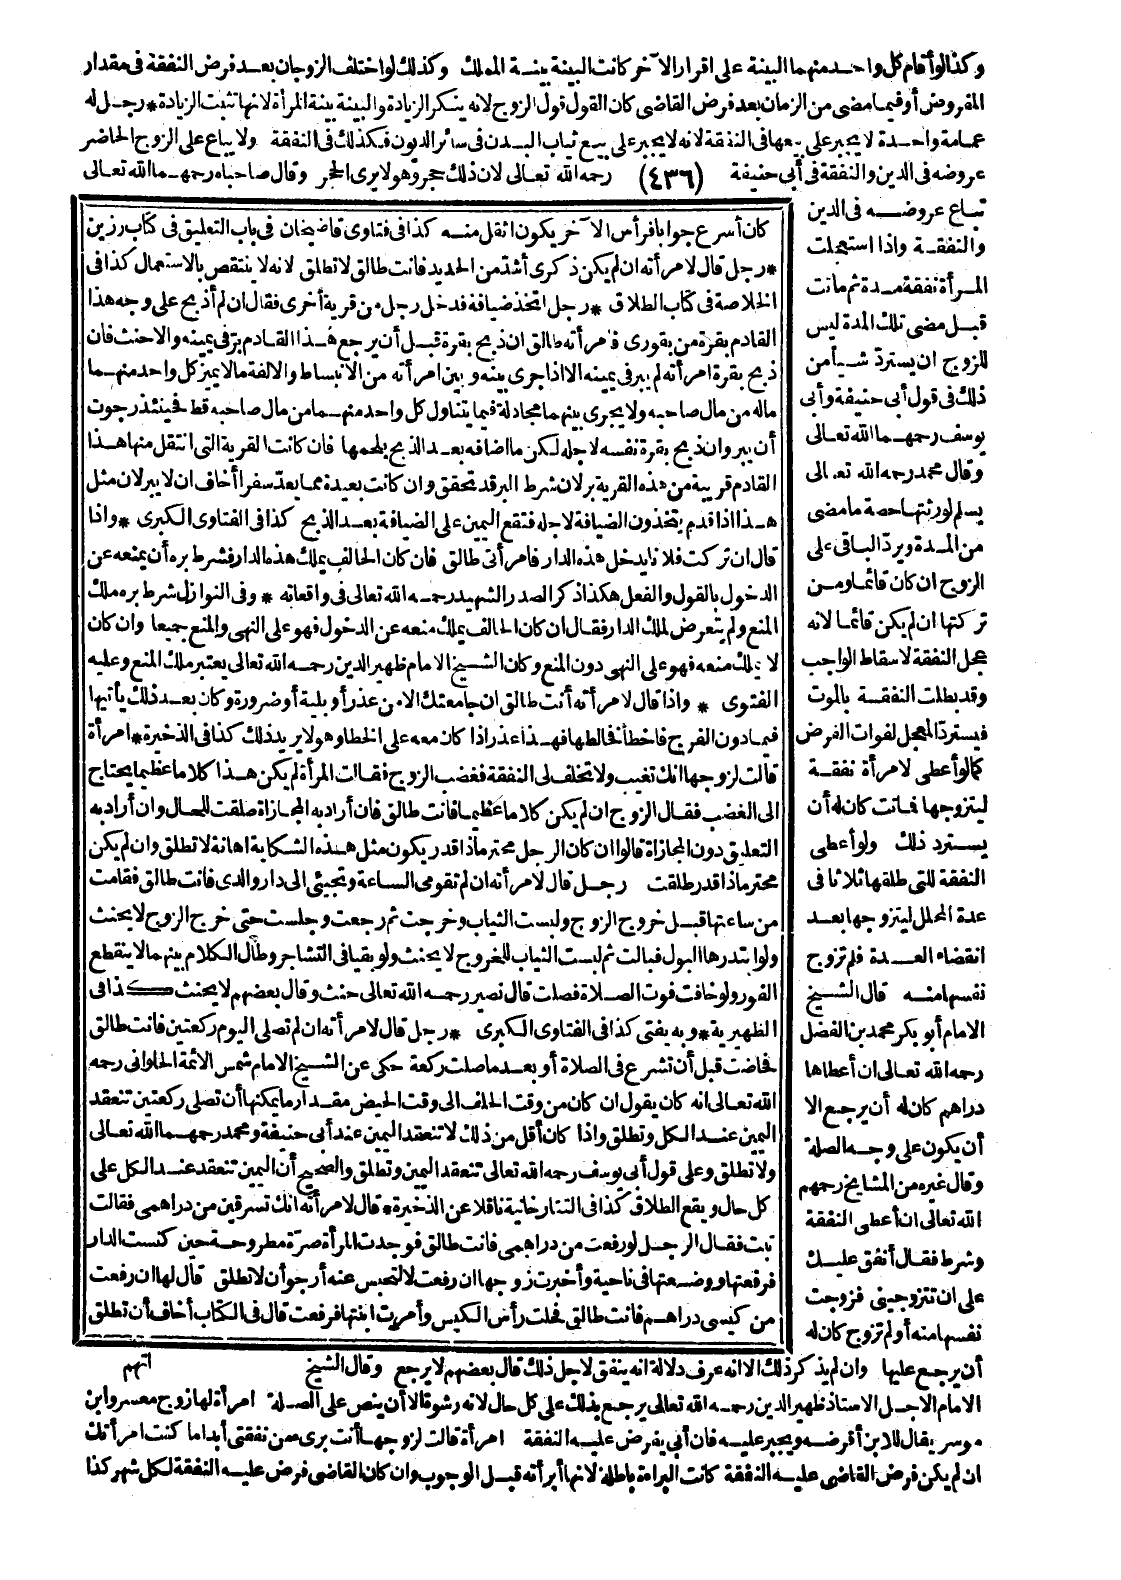 وكذا لو أقام كل واحد منهما البينة على اقرار الآخر كانت البينة بينة المملك وكذلك لو اختلف الزوجان بعد فرض النفقة فى مقدار
المفروض أو فيما مضى من الزمان بعد فرض القاضى كان القول قول الزوج لانه ينكر الزيادة والبينة بينة المرأة لانها تثبت الزيادة * رجل له
عمامة واحدة لا يجبر على بيعها فى النفقة لانه لا يجبر على بيع ثياب البدن فى سائر الديون فكذلك فى النفقة ولا يباع على الزوج الحاضر
عروضه فى الدين والنفقة فى أبى حنيفة (٤٣٦) رحمه الله تعالى لان ذلك حجر وهو لا يرى الحجر وقال صاحباه رحمهما الله تعالى
تباع عروضه فى الدين
والنفقة واذا استعجلت
المرأة نفقة مدة ثم ماتت
قبل مضى تلك المدة ليس
للزوج ان يسترد شيأ من
ذلك فى قول أبى حنيفة وأبى
يوسف رحمهما الله تعالى
وقال محمد رحمه الله تعالى
يسلم لورثتها حصة ما مضى
من المدة ويرد الباقى على
الزوج ان كان قائما ومن
تركتها ان لم يكن قائما لانه
عجل النفقة لاسقاط الواجب
وقد بطلت النفقة بالموت
فيسترد المعجل لفوات الغرض
كما لو أعطى لامرأة نفقة
ليتزوجها فماتت كان له أن
يسترد ذلك ولو أعطى
النفقة للتى طلقها ثلاثا فى
عدة المحلل ليتزوجها بعد
انقضاء العدة فلم تزوج
نفسها منه قال الشيخ
الامام أبو بكر محمد بن الفضل
رحمه الله تعالى ان أعطاها
دراهم كان له أن يرجع الا
أن يكون على وجه الصلة
وقال غيره من المشايخ رحمهم
الله تعالى ان أعطى النفقة
وشرط فقال أنفق عليك
على ان تتزوجينى فزوجت
نفسها منه أو لم تزوج كان له
كان أسرع جوابا فرأس الآخر يكون اثقل منه كذا فى فتاوى قاضيخان فى باب التعليق فى كتاب رزين
* رجل قال لامرأته ان لم يكن ذكرى أشد من الحديد فانت طالق لا تطلق لانه لا ينتقص بالاستعمال كذا فى
الخلاصة فى كتاب الطلاق * رجل اتخذ ضيافة فدخل رجل من قرية أخرى فقال ان لم أذبح على وجه هذا
القادم بقرة من بقورى فامرأته طالق ان ذبح بقرة قبل أن يرجع هذا القادم بر فى يمينه والا حنث فان
ذبح بقرة امرأته لم يبر فى يمينه الا اذا جرى بينه وبين امرأته من الانبساط والالفة ما لا يميز كل واحد منهما
ماله من مال صاحبه ولا يجرى بينهما مجادلة فيما يتناول كل واحد منهما من مال صاحبه قط فحينئذ رجوت
أن يبر وان ذبح بقرة نفسه لاجله لكن ما اضافه بعد الذبح بلحمها فان كانت القرية التى انتقل منها هذا
القادم قريبة من هذه القرية بر لان شرط البر قد تحقق وان كانت بعيدة مما يعد سفرا أخاف ان لا يبر لان مثل
هذا اذا قدم يتخذون الضيافة لاجله فتقع اليمين على الضيافة بعد الذبح كذا فى الفتاوى الكبرى * واذا
قال ان تركت فلانا يدخل هذه الدار فامرأتى طالق فان كان الحالف يملك هذه الدار فشرط بره أن يمنعه عن
الدخول بالقول والفعل هكذا ذكر الصدر الشهيد رحمه الله تعالى فى واقعاته * وفى النوازل شرط بره ملك
المنع ولم يتعرض لملك الدار فقال ان كان الحالف يملك منعه عن الدخول فهو على النهى والمنع جميعا وان كان
لا يملك منعه فهو على النهى دون المنع وكان الشيخ الامام ظهير الدين رحمه الله تعالى يعتبر ملك المنع وعليه
الفتوى * واذا قال لامرأته أنت طالق ان جامعتك الا من عذر أو بلية أو ضرورة وكان بعد ذلك يأتيها
فيما دون الفرج فاخطأ فخالطها فهذا عذر اذا كان معه على الخطا وهو لا يريد ذلك كذا فى الذخيرة * امرأة
قالت لزوجها انك تغيب ولا تخلف لى النفقة فغضب الزوج فقالت المرأة لم يكن هذا كلاما عظيما يحتاج
الى الغضب فقال الزوج ان لم يكن كلاما عظيما فانت طالق فان أراد به المجازاة طلقت للحال وان أراد به
التعليق دون المجازاة قالوا ان كان الرجل محترما ذا قدر يكون مثل هذه الشكاية اهانة لا تطلق وان لم يكن
محترما ذا قدر طلقت رجل قال لامرأته ان لم تقومى الساعة وتجيئى الى دار والدى فانت طالق فقامت
من ساعتها قبل خروج الزوج ولبست الثياب وخرجت ثم رجعت وجلست حتى خرج الزوج لا يحنث
ولو ابتدرها البول فبالت ثم لبست الثياب للخروج لا يحنث ولو بقيا فى التشاجر وطال الكلام بينهما لا ينقطع
الفور ولو خافت فوت الصلاة فصلت قال نصير رحمه الله تعالى حنث وقال بعضهم لا يحنث كذا فى
الظهيرية * وبه يفتى كذا فى الفتاوى الكبرى * رجل قال لامرأته ان لم تصلى اليوم ركعتين فانت طالق
فحاضت قبل أن تشرع فى الصلاة أو بعد ما صلت ركعة حكى عن الشيخ الامام شمس الائمة الحلوانى رحمه
الله تعالى انه كان يقول ان كان من وقت الحلف الى وقت الحيض مقدار ما يمكنها أن تصلى ركعتين تنعقد
اليمين عند الكل وتطلق واذا كان أقل من ذلك لا تنعقد اليمين عند أبى حنيفة ومحمد رحمهما الله تعالى
ولا تطلق وعلى قول أبى يوسف رحمه الله تعالى تنعقد اليمين وتطلق والصحيح أن اليمين تنعقد عند الكل على
كل حال ويقع الطلاق كذا فى التتارخانية ناقلا عن الذخيرة * قال لامرأته انك تسرقين من دراهمى فقالت
تبت فقال الرجل لو رفعت من دراهمى فانت طالق فوجدت المرأة صرة مطروحة حين كنست الدار
فرفعتها ووضعتها فى ناحية وأخبرت زوجها ان رفعت لا لتحبس عنه أرجو أن لا تطلق قال لها ان رفعت
من كيسى دراهم فانت طالق فحلت رأس الكيس وأمرت ابنتها فرفعت قال فى الكتاب أخاف أن تطلق
أن يرجع عليها وان لم يذكر ذلك الا انه عرف دلالة انه ينفق لاجل ذلك قال بعضهم لا يرجع وقال الشيخ اتهم
الامام الاجل الاستاذ ظهير الدين رحمه الله تعالى يرجع بذلك على كل حال لانه رشوة الا أن ينص على الصلة امرأة لها زوج معسر وابن
موسر يقال للابن أقرضه ويجبر عليه فان أبى يفرض عليه النفقة امرأة قالت لزوجها أنت برىء من نفقتى أبدا ما كنت امرأتك
ان لم يكن فرض القاضى عليه النفقة كانت البراءة باطلة لانها أبرأته قبل الوجوب وان كان القاضى فرض عليه النفقة لكل شهر كذا